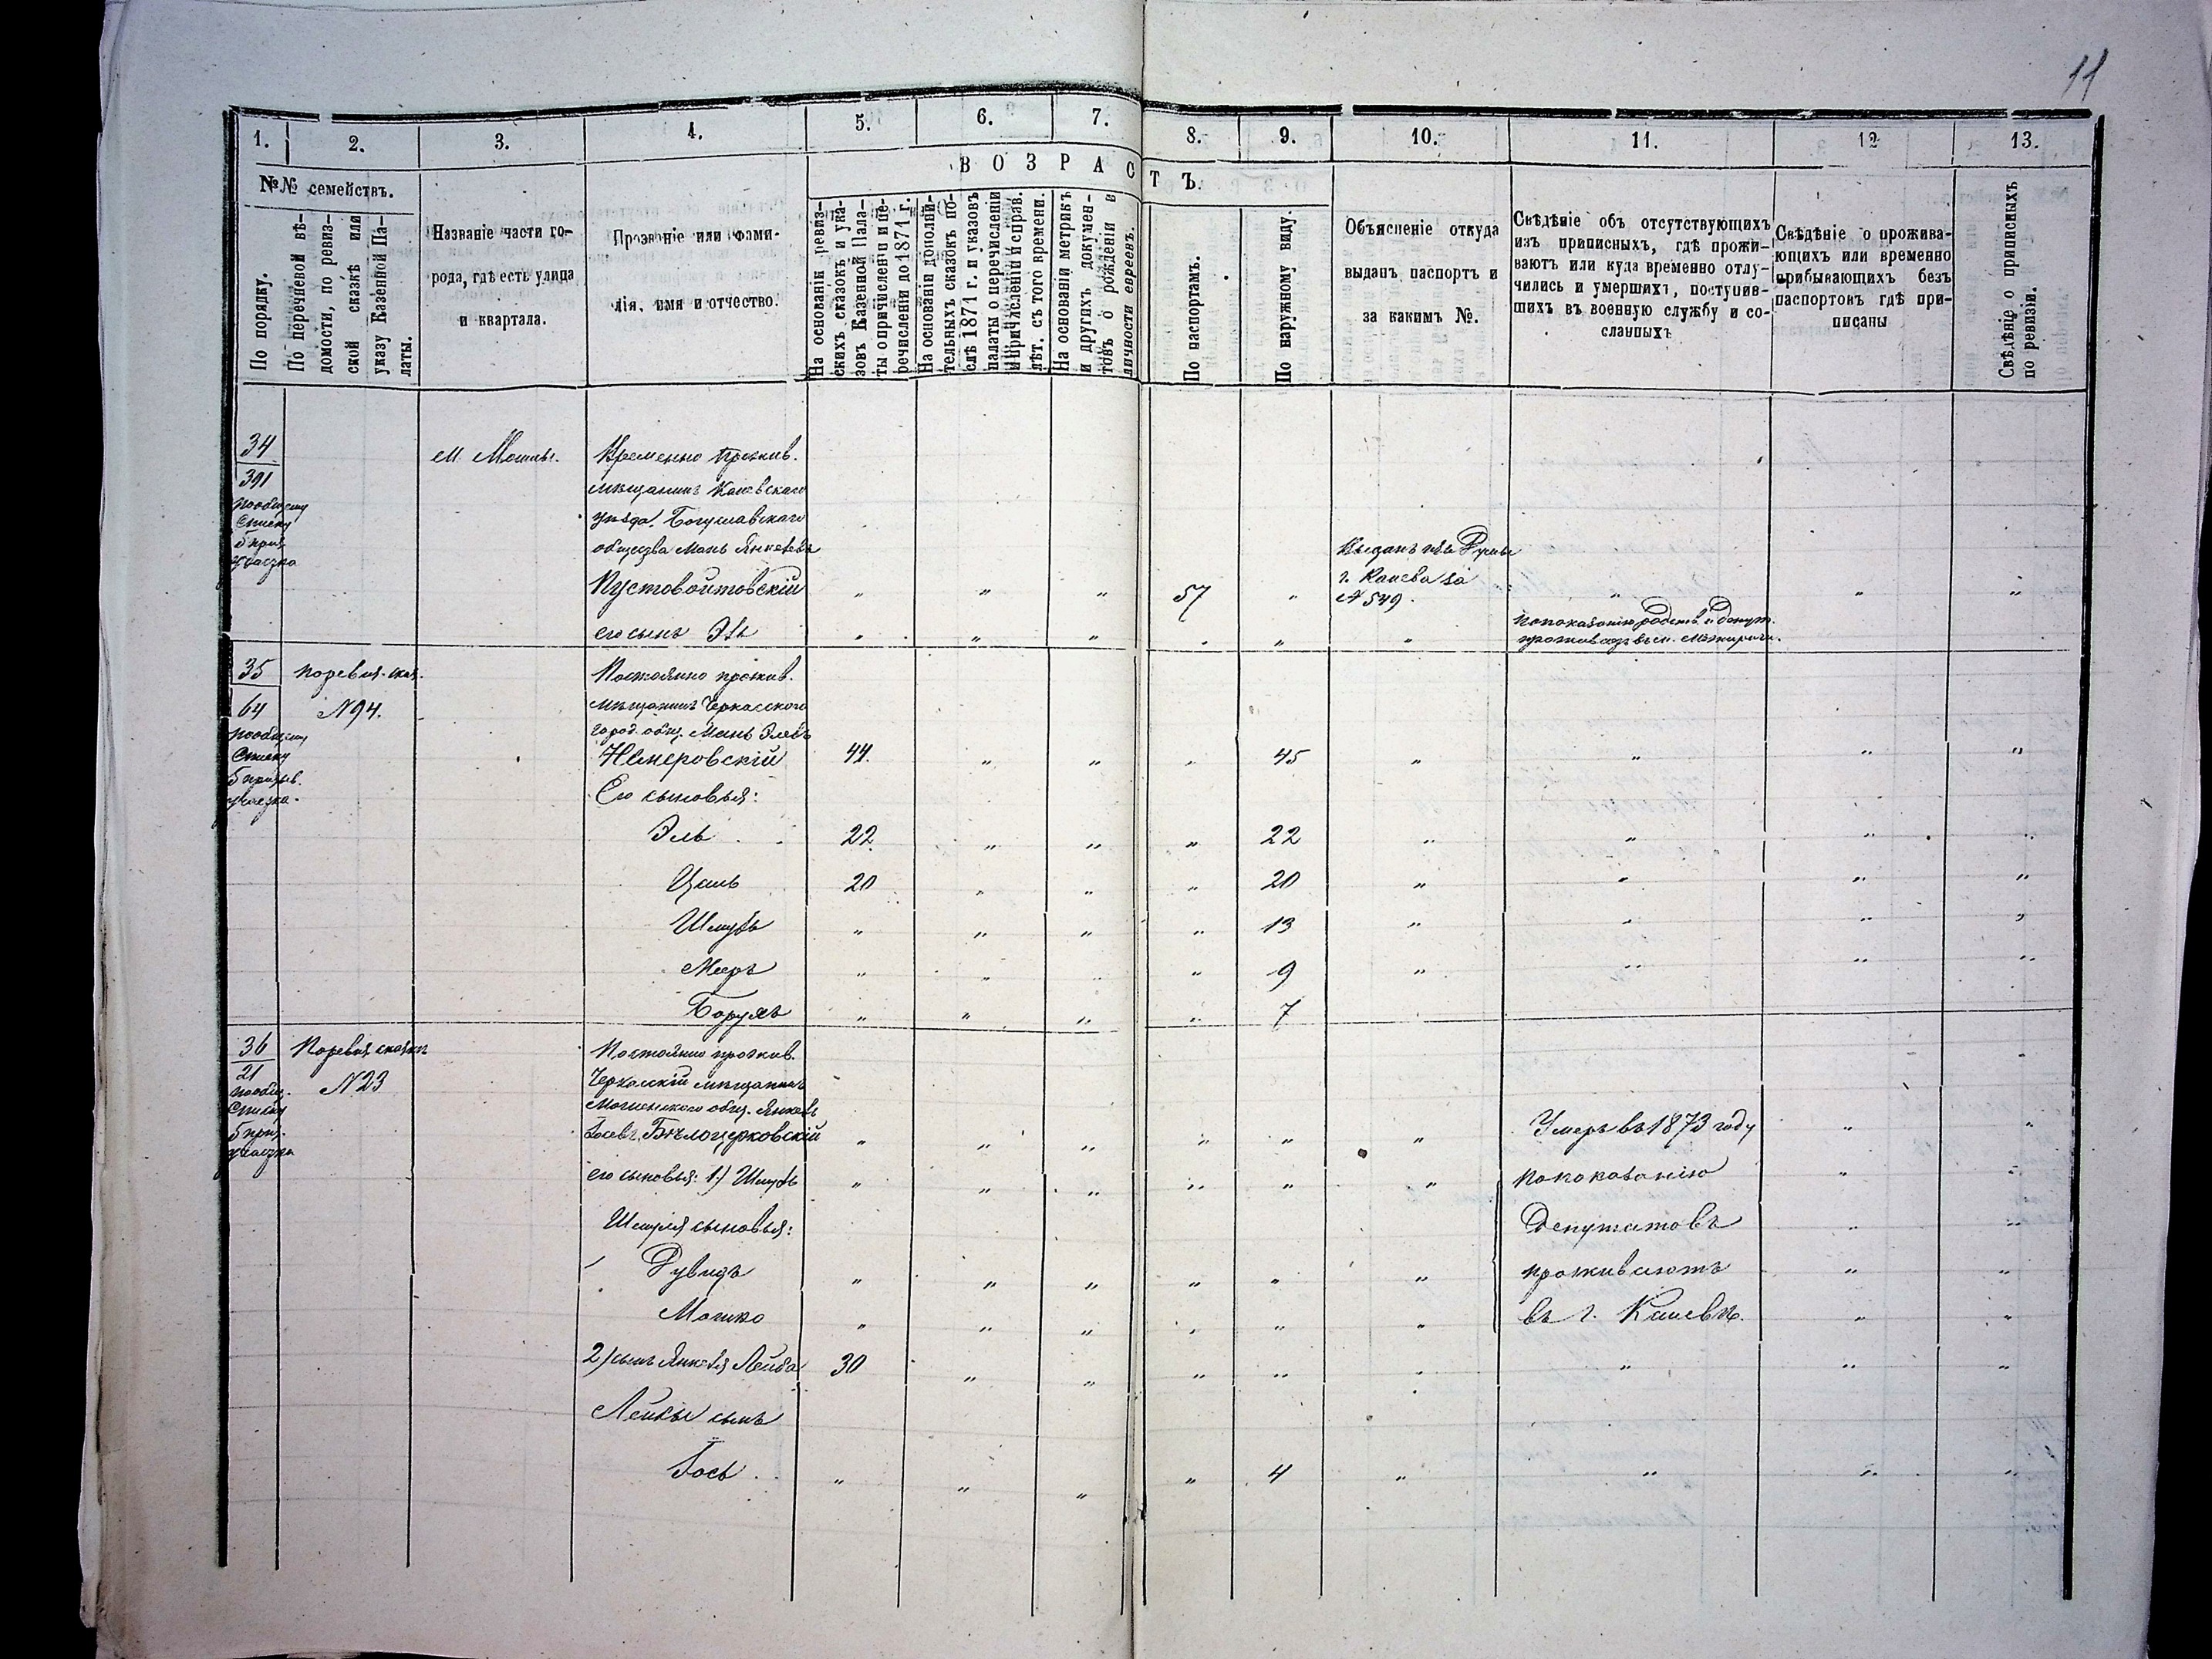 11
1.
2.
3.
4.
5.
6.
7.
8.
9.
10.
11.
12
13.
№№ семействъ.
По порядку.
По перечневой вѣ-
домости, по ревиз-
ской сказкѣ или
указу Казенной Па-
латы.
Названіе части го-
рода, гдѣ есть улица
и квартала.
Прозваніе или фами-
лія, имя и отчество.
ВОЗРАСТЪ.
На основаніи ревиз-
скихъ сказокъ и ука-
зовъ Казенной Пала-
ты о причисленіи и пе-
речисленіи до 1871 г.
На основаніи дополни-
тельныхъ сказокъ по-
слѣ 1871 г. и указовъ
палаты о перечисленіи
и причисленіи и справ.
лѣт. съ того времени.
На основаніи метрикъ
и другихъ докумен-
товъ о рожденіи и
личности евреевъ.
По паспортамъ.
По наружному виду.
Объясненіе откуда
выданъ паспортъ и
за какимъ №.
Свѣдѣніе объ отсутствующихъ
изъ приписныхъ, гдѣ прожи-
ваютъ или куда временно отлу-
чились и умершихъ, поступив-
шихъ въ военную службу и со-
сланныхъ
Свѣдѣніе о прожива-
ющихъ или временно
прибывающихъ безъ
паспортовъ гдѣ при-
писаны
Свѣдѣніе о приписныхъ
по ревизіи.
34
391
пообщему
списку
5 приз.
участка
М. Мошны.
Временно прожив.
мѣщанинъ Каневскаго
уѣзда. Богуславскаго
общества Мань Янкелевъ
Пустовойтовскій " " " 57 "
Выданъ изъ Думы
г. Канева за
№ 549.
" " "
его сынъ Эль " " " " " "
попоказанію родств. и депут.
проживаетъ въ м. Межиричи.
35
64
пообщему
списку
5 призыв.
участка.
поревиз. сказ.
№94.
Постоянно прожив.
мѣщанинъ Черкасского
город. общ. Мань Элевъ
Немеровскій 44. " " " 45 " " " "
Его сыновья:
Эль 22. " " " 22 " " " "
Цаль 20 " " " 20 " " " "
Шмуль " " " " 13 " " " "
Мееръ " " " " 9 " " " "
Борухъ " " " " 7
36
21
пообщ.
списку
5 приз.
участка
Поревиз. сказкѣ
№23
Постоянно прожив.
Черкасскій мѣщанинъ
Мошенского общ. Янкель
Іосевъ Бѣлоцерковскій " " " " " " Умеръ въ 1873 году " "
его сыновья: 1) Шмуль " " " " " " попоказанію " "
Шмуля сыновья: Депутатовъ " "
Дувидъ " " " " " " проживаютъ " "
Мошко " " " " " " въ г. Каневѣ. " "
2) сынъ Янкеля Лейба 30 " " " " " " " "
Лейбы сынъ
Іось " " " " 4 " " " "